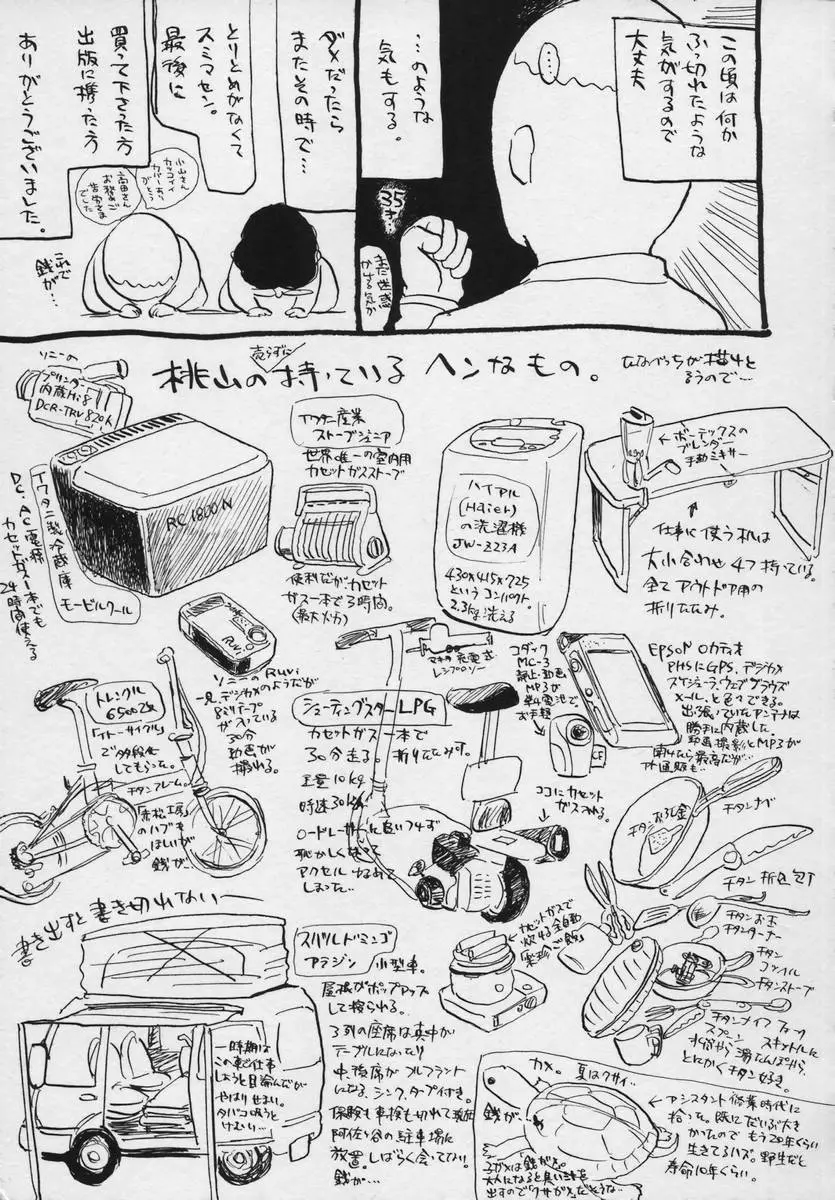 この頃は何か
ふっ切れたような
気がするので
大丈夫
…のような
気もする。
35才…
ダメだったら
またその時で…
とりとめがなくて
スミマセン。
最後に
買って下さった方
出版に携った方
ありがとうございました。
小山さん
カッコイイ
カバーありがとう
高田さん
お疲れ
さま
でした
これで
銭が…
桃山の売らずに持っているヘンなもの。
ソニーの
プリンター
内蔵Hi8
DCR-TRV820K
RC1800N
イワタニ製冷蔵庫
モービルクール
DC、AC電源
カセットガス一本でも
24時間使える
イワタニ産業
ストーブジュニア
世界唯一の室内用
カセットガスストーブ
便利だがカセット
ガス一本で3時間。
(最大火力)
ハイアル
(Haier)
の洗濯機
JW-Z23A
430×415×725
というコンパクト。
2.3kg洗える
←ボーテックスの
ブレンダー
手動ミキサー
仕事に使う机は
大小合わせ4つ持ている。
全てアウトドア用の
折りたたみ。
ソニーのRuvi
一見、デジカメのようだが
8ミリテープ
が入っている
30分
動画が
撮れる。
トレンクル
6500改
「イトーサイクル」
で多段化
してもらった。
チタンフレーム。
「赤松工房」
のハブも
ほしいが
銭が…
マキタ充電式
レシプロソー
シューティングスターLPG
カセットガス一本で
30分走る。折りたたみ可。
重量10kg
時速30k
ロードレーサーに追いつけず
恥かしくなって
アクセルゆるめて
しまった…
ココにカセット
ガス入れる。
コダック
MC-3
静止・動画
MP3が
単4電池で
お手軽
CF
EPSON ロカティオ
PHSにGPS、デジカメ
スケジューラ、ウェブブラウズ
メール、と色々できる。
出っ張っていたアンテナは
勝手に内蔵した。
動画撮影とMP3が
チタンおろし金
チタンナベ
チタン折込包丁
チタンお玉
チタンターナー
チタン
コッヘル
チタンストーブ
チタンナイフフォーク
スプーン
スキットルに
水筒から湯たんぽから、
とにかくチタン好き。
カセットガスで
炊ける全自動
書き出すと書き切れない―
スバルドミンゴ
アラジン
小型車。
屋根がポップアップ
して捨られる。
3列の座席は真中が
テーブルになったり
中後席が フルフラット
になる、シンク、タープ付き。
保険も車検も切れて現在
阿佐ヶ谷の駐車場に
放置。しばらく会ってない。
銭が…
一時期は
この車で仕事
しようと目論んだが
やはりせまい。
タバコ吸うと
けむい…
カメ。
夏はクサイ
銭が…
子ガメは「銭ガメ」。
大人になると臭い汁を
出すので「クサガメ」だそうな…
←アシスタント修業時代に
拾った。既にだいぶ大き
かったので もう20年くらい
生きてるハズ。野生だと
寿命10年くらい。